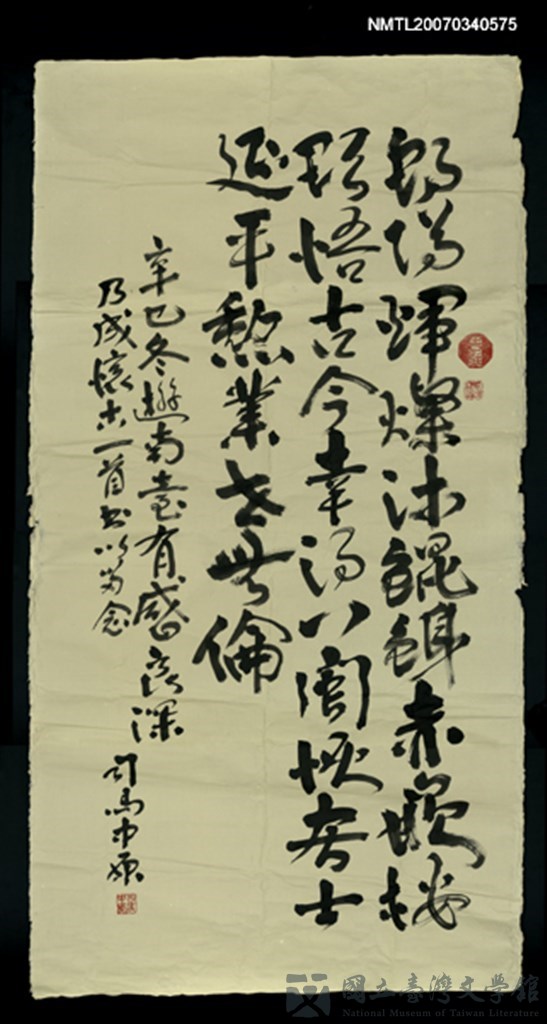 NMTL20070340575
朝陽輝燦沐鯤鯓赤嵌樓
頭悟古今幸得八閩恢奇士
延平勲業世無倫
辛巳冬遊南臺有感良深
乃成懷古一首書以為念
司馬中原
國立臺灣文學館
National Museum of Taiwan Literature